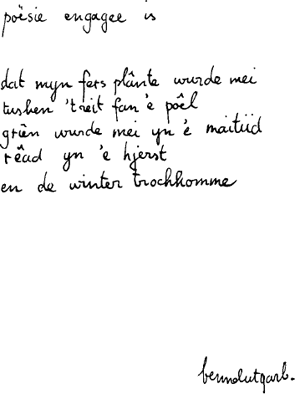 poësie engagee is
dat myn fers plânte wurde mei
tusken 'treit fan 'e poêl
griên wurde mei yn 'e maitiid
rêad yn 'e hjerst
en de winter trochkomme